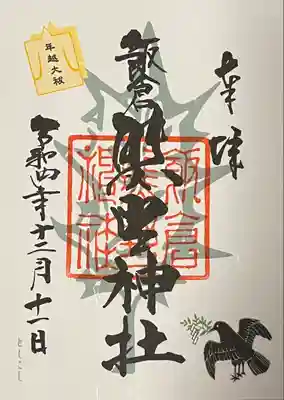 奉拝
飯倉
熊野神社
飯倉
熊野
神社
年越大祓
令和四年十二月十一日
としこし